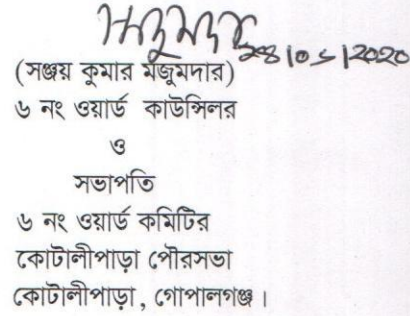 মজুমদার ২৪/০১/২০২০
(সঞ্জয় কুমার মজুমদার)
৬ নং ওয়ার্ড কাউন্সিলর
ও
সভাপতি
৬ নং ওয়ার্ড কমিটির
কোটালীপাড়া পৌরসভা
কোটালীপাড়া, গোপালগঞ্জ।